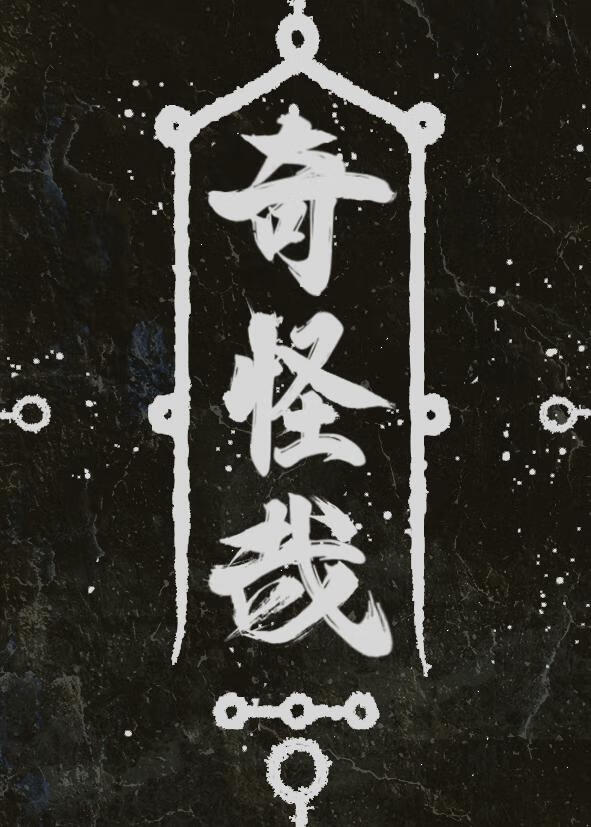 奇怪哉